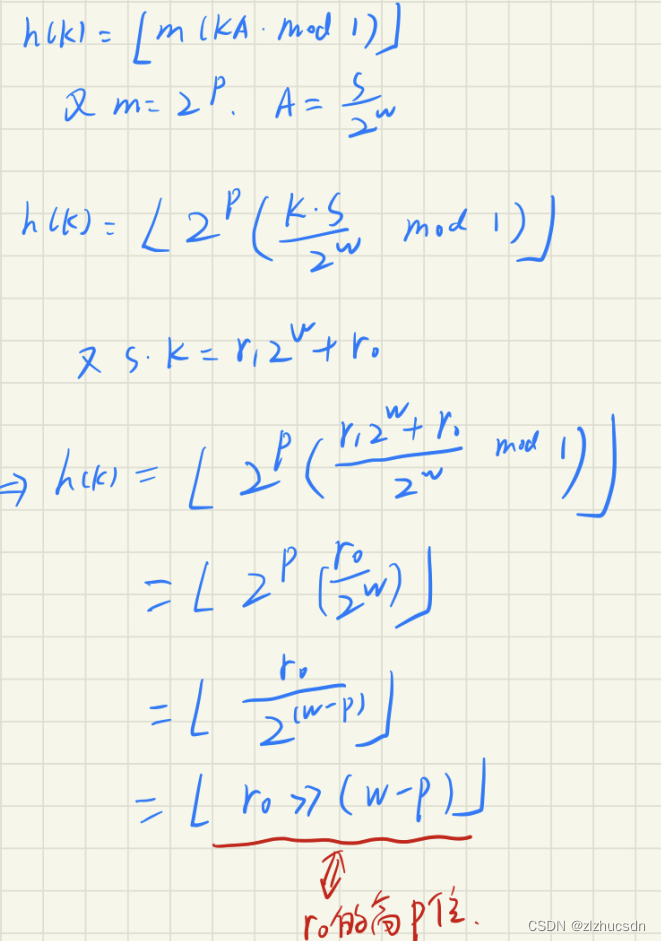 h(k) = ⌊m (KA · mod 1)⌋
又 m = 2^p. A = s/2^w
h(k) = ⌊2^p (k·s/2^w mod 1)⌋
又 s·k = r₁2^w + r₀
⇒ h(k) = ⌊2^p ((r₁2^w + r₀)/2^w mod 1)⌋
= ⌊2^p (r₀/2^w)⌋
= ⌊r₀/2^(w-p)⌋
= ⌊r₀ >> (w-p)⌋
⇕
r₀的高p位.
CSDN @zlzhucsdn